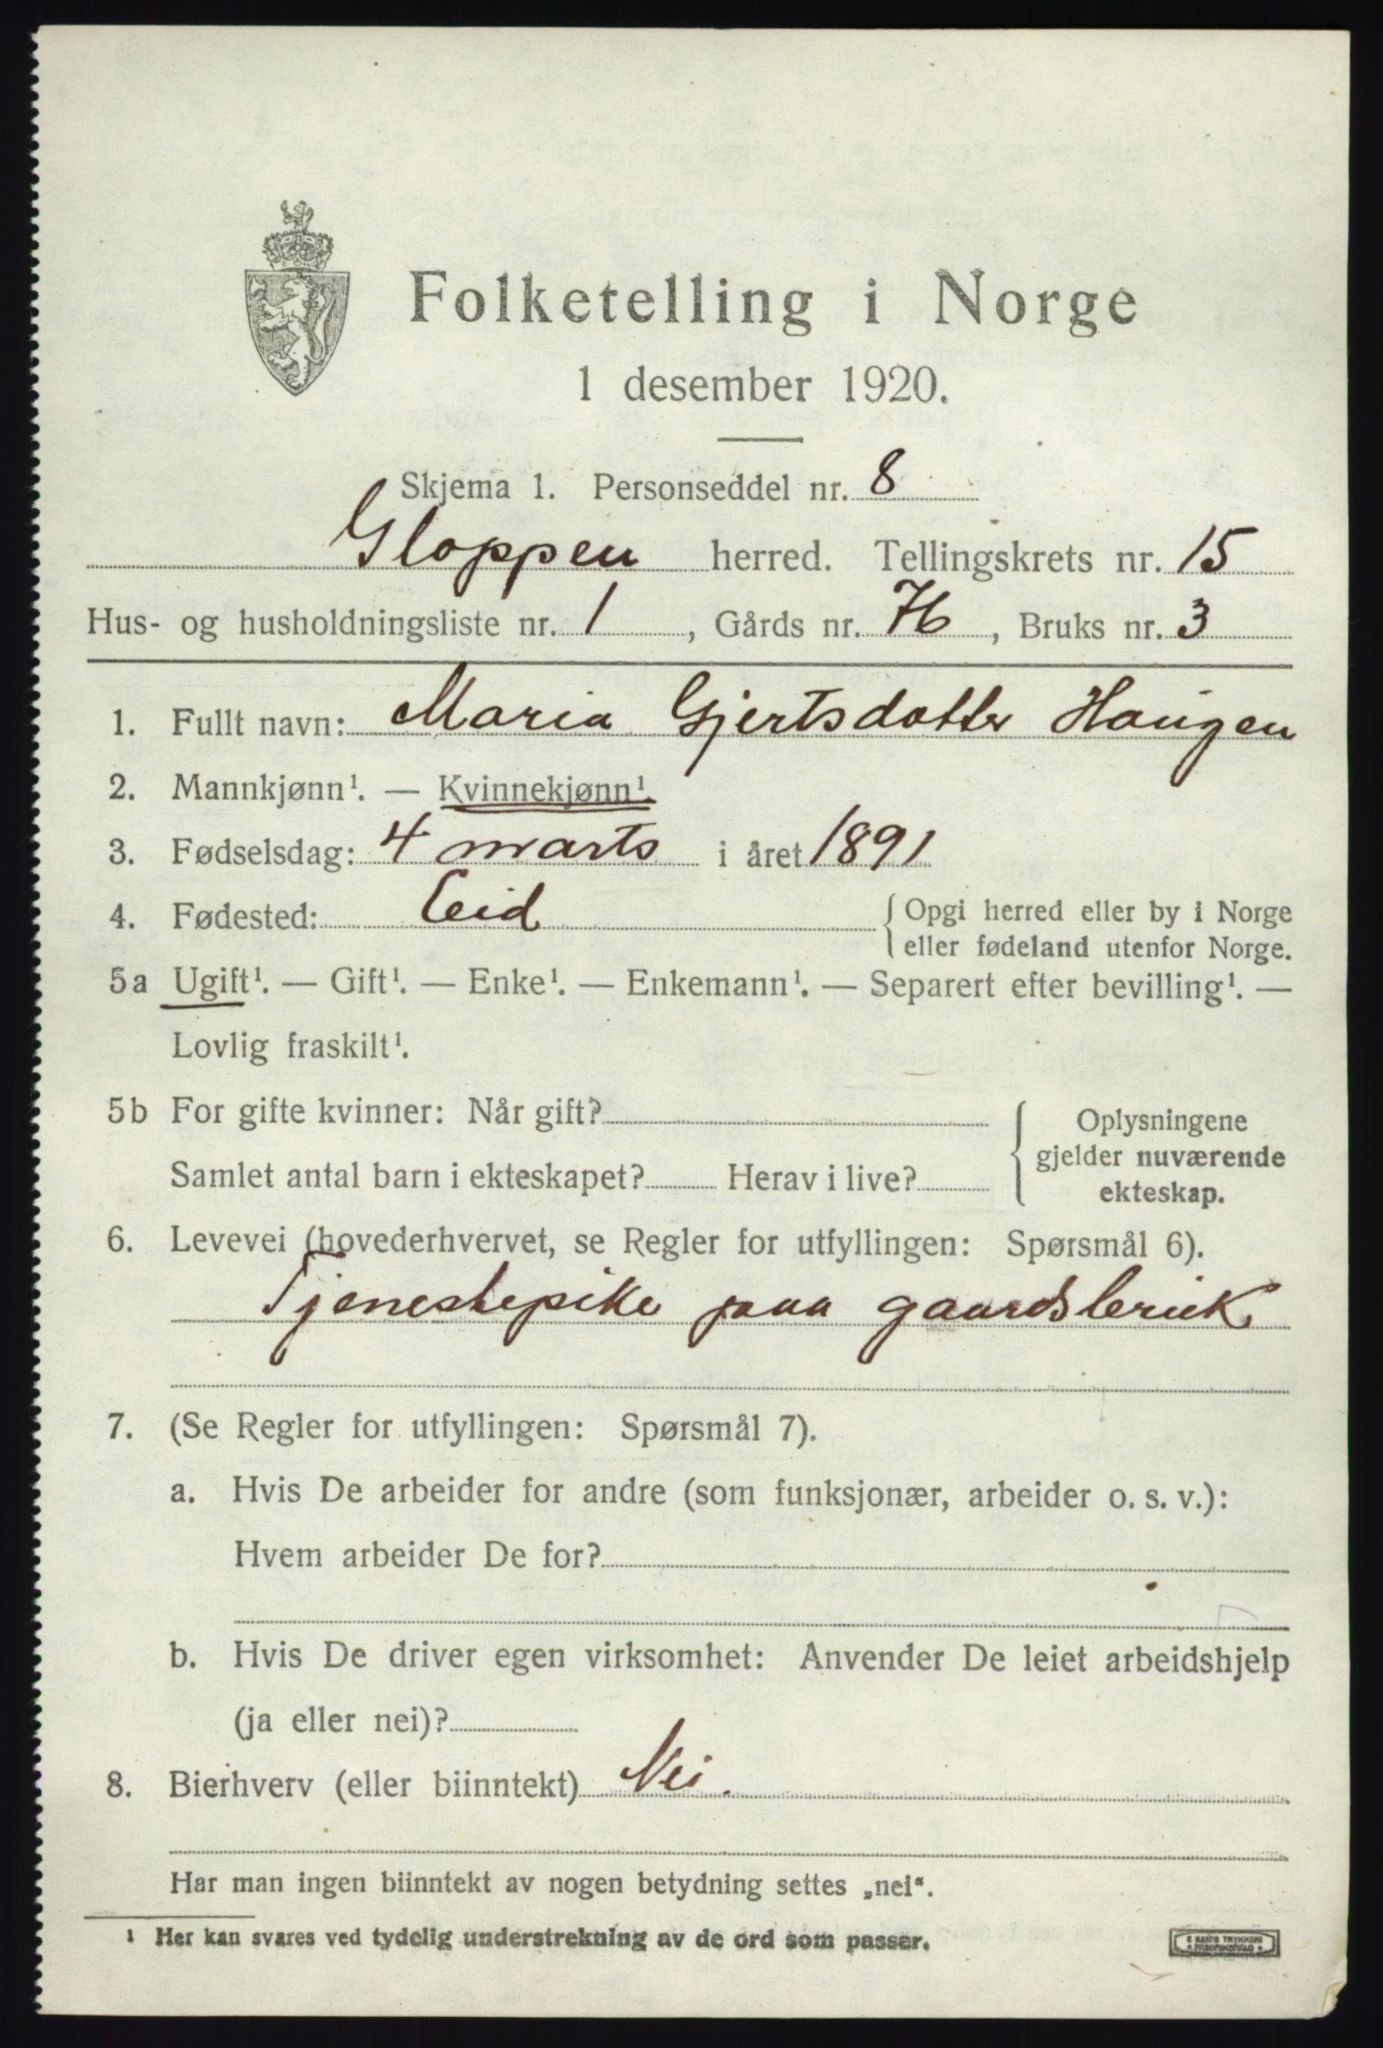 Folketelling i Norge
1 desember 1920.
Skjema 1. Personseddel nr. 8
Gloppen herred. Tellingskrets nr. 15
Hus- og husholdningsliste nr. 1, Gårds nr. 76, Bruks nr. 3
1. Fullt navn: Maria Gjertsdotter Haugen
2. Mannkjønn¹. — Kvinnekjønn¹.
3. Fødselsdag: 4 marts i året 1891
4. Fødested: Eid { Opgi herred eller by i Norge
eller fødeland utenfor Norge.
5a Ugift¹. — Gift¹. — Enke¹. — Enkemann¹. — Separert efter bevilling¹. —
Lovlig fraskilt¹.
5b For gifte kvinner: Når gift?
Samlet antal barn i ekteskapet? Herav i live?
{ Oplysningene
gjelder nuværende
ekteskap.
6. Levevei (hovederhvervet, se Regler for utfyllingen: Spørsmål 6).
Tjenestepike paa gaardsbruk
7. (Se Regler for utfyllingen: Spørsmål 7).
a. Hvis De arbeider for andre (som funksjonær, arbeider o. s. v.):
Hvem arbeider De for?
b. Hvis De driver egen virksomhet: Anvender De leiet arbeidshjelp
(ja eller nei)?
8. Bierhverv (eller biinntekt) Nei.
Har man ingen biinntekt av nogen betydning settes „nei“.
¹ Her kan svares ved tydelig understrekning av de ord som passer.